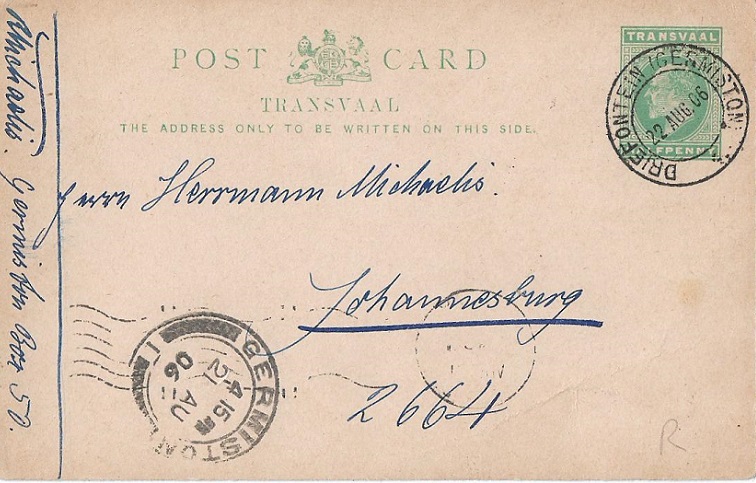 POST CARD
TRANSVAAL
THE ADDRESS ONLY TO BE WRITTEN ON THIS SIDE.
TRANSVAAL
HALFPENNY
DRIEFONTEIN (GERMISTON)
22 AUG 06
Herrn Herrmann Michaelis.
Johannesburg
2664
GERMISTON
1
4 15
21 AU
06
Michaelis. Germiston Box 50.
R